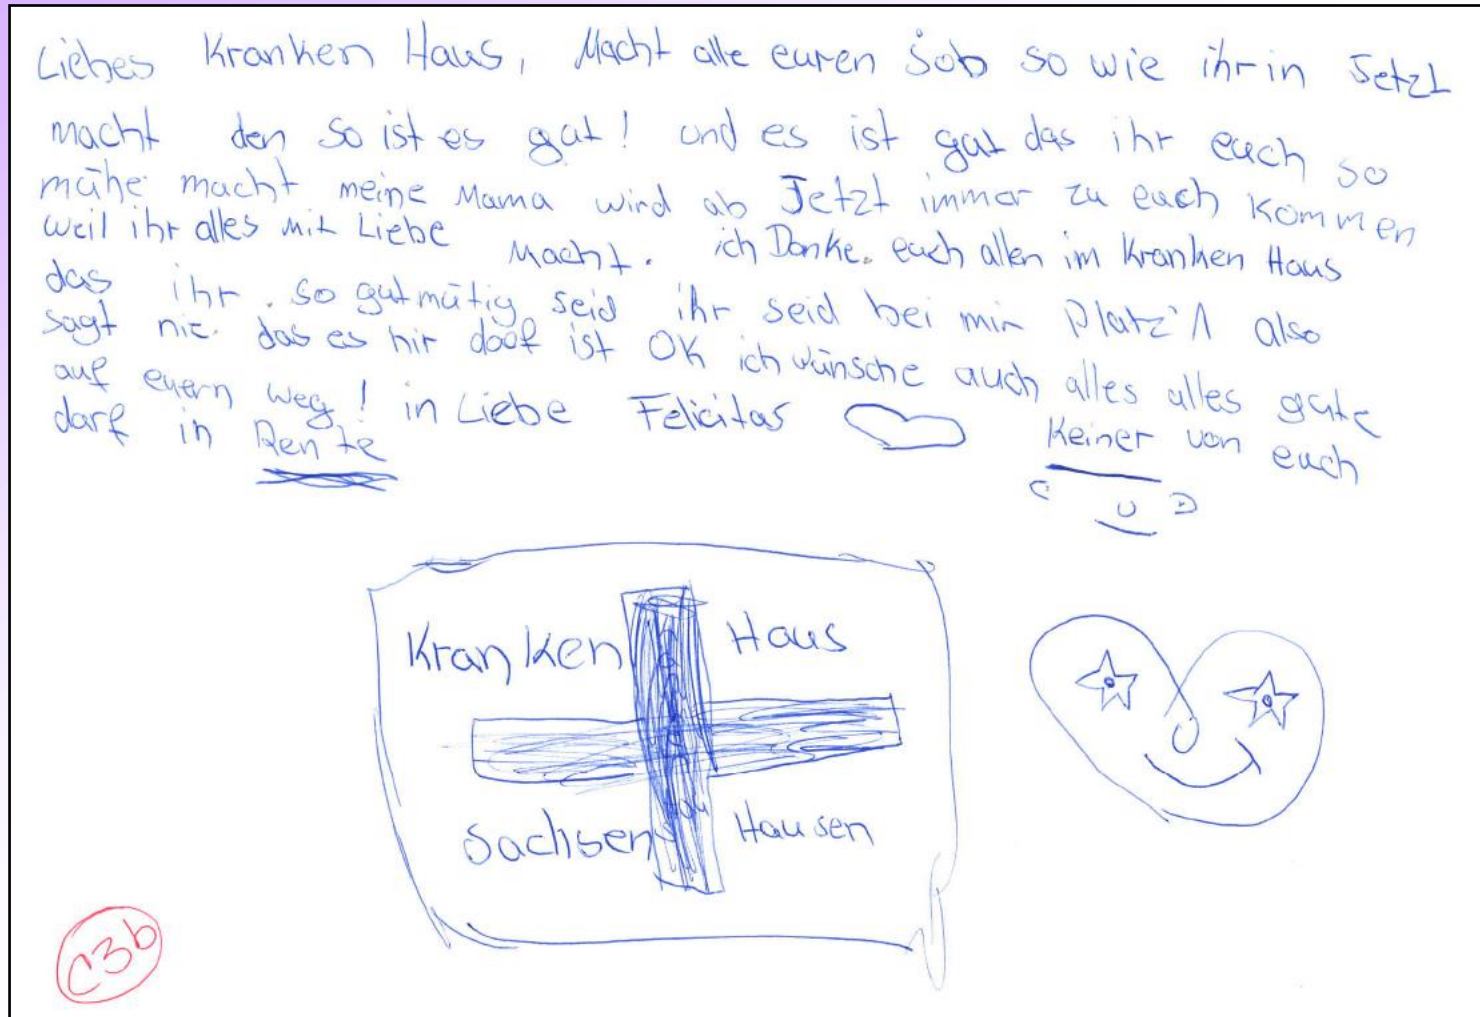 Liebes Kranken Haus, Macht alle euren Job so wie ihr in Jetzt
macht den so ist es gut! und es ist gut das ihr euch so
mühe macht meine Mama wird ab Jetzt immer zu euch kommen
weil ihr alles mit Liebe macht. ich Danke euch allen im Kranken Haus
das ihr so gutmütig seid ihr seid bei mir Platz 1 also
sagt nie das es hir doof ist OK ich wünsche euch alles alles gute
auf euern weg! in Liebe Felicitas Keiner von euch
darf in Rente
Kranken Haus
Sachsen Hausen
C3b